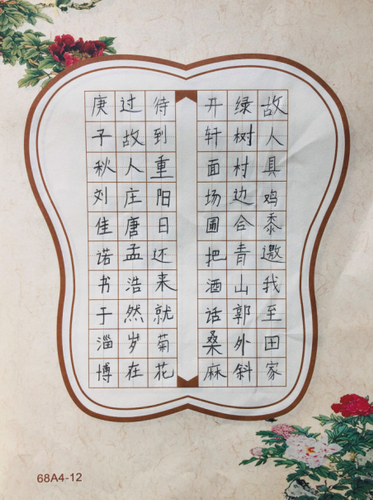 故人具鸡黍邀我至田家
绿树村边合青山郭外斜
开轩面场圃把酒话桑麻
待到重阳日还来就菊花
过故人庄唐孟浩然岁在
庚子秋刘佳诺书于淄博
68A4-12